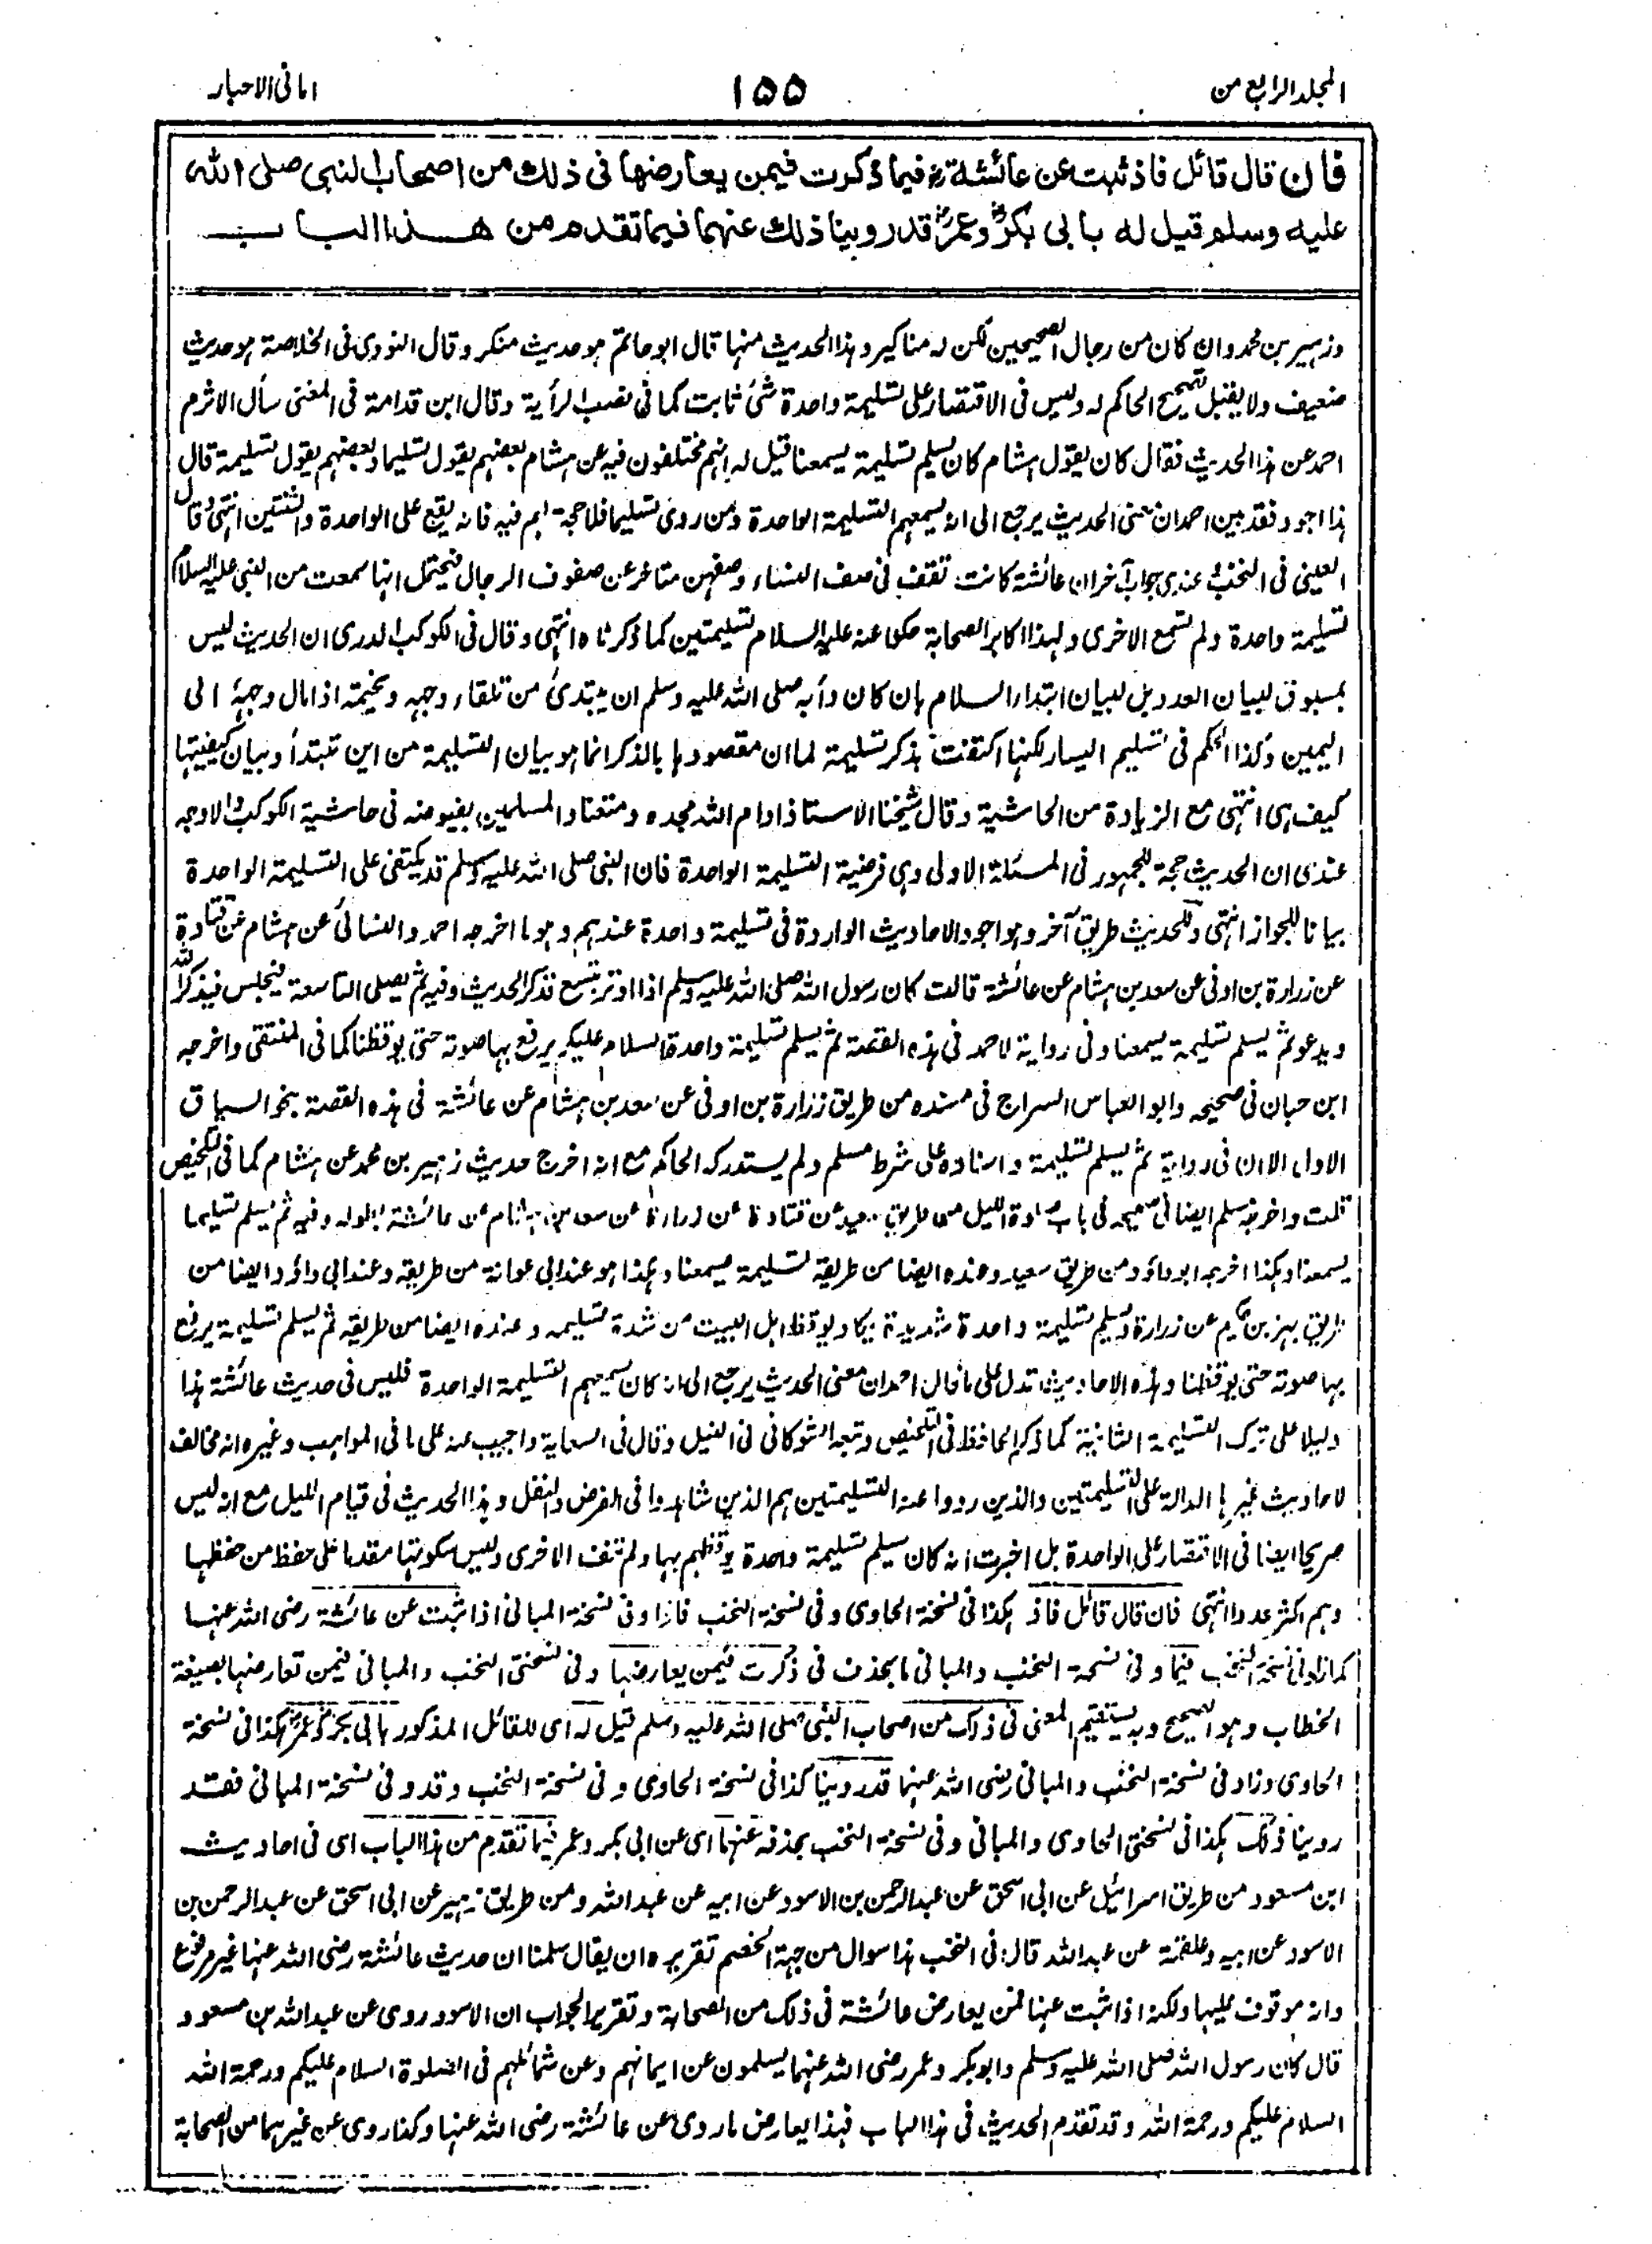 المجلد الرابع من
۱۵۵
امانی الاحبار
فان قال قائل فاذ ثبت عن عائشة رض فيما ذكرت فيمن يعارضها فی ذلك من اصحاب النبی صلی الله
عليه وسلم قيل له بابی بكرؓ وعمرؓ قد روينا ذلك عنهما فيما تقدم من هذا الباب
وزہیر بن محمد وان کان من رجال الصحیحین لکن لہ مناکیر وہذا الحدیث منہا قال ابو حاتم ہو حدیث منکر وقال النووی فی الخلاصۃ ہو حدیث
ضعیف ولا یقبل تصحیح الحاکم لہ ولیس فی الاقتصار علی تسلیمۃ واحدۃ شئ ثابت کما فی نصب الرأیۃ وقال ابن قدامۃ فی المغنی سأل الاثرم
احمد عن ہذا الحدیث فقال کان یقول ہشام کان یسلم تسلیمۃ یسمعنا قیل لہ انہم مختلفون فیہ عن ہشام بعضہم یقول تسلیما وبعضہم یقول تسلیمۃ قال
ہذا اجود فقد بین احمد ان معنی الحدیث یرجع الی انہ یسمعہم التسلیمۃ الواحدۃ ومن روی تسلیما فلا حجۃ لہم فیہ فانہ یقع علی الواحدۃ والثنتین انتہی وقال
العینی فی النخب وعندی جواب آخر ان عائشۃ کانت تقف فی صف النساء وصفہن متاخر عن صفوف الرجال فیحتمل انہا سمعت من النبی علیہ السلام
تسلیمۃ واحدۃ ولم تسمع الاخری ولہذا اکابر الصحابۃ حکوا عنہ علیہ السلام تسلیمتین کما ذکرناہ انتہی وقال فی الکوکب الدری ان الحدیث لیس
بمسوق لبیان العدد بل لبیان ابتداء السلام بان کان دأبہ صلی اللہ علیہ وسلم ان یبتدئ من تلقاء وجہہ ویختمہ اذا مال وجہہ الی
الیمین وکذا الحکم فی تسلیم الیسار لکنہا اکتفت بذکر تسلیمۃ لما ان مقصودہا بالذکر انما ہو بیان التسلیمۃ من این تبتدأ وبیان کیفیتہا
کیف ہی انتہی مع الزیادۃ من الحاشیۃ وقال شیخنا الاستاذ ادام اللہ مجدہ ومتعنا والمسلمین بفیوضہ فی حاشیۃ الکوکب والاوجہ
عندی ان الحدیث حجۃ للجمہور فی المسئلۃ الاولی وہی فرضیۃ التسلیمۃ الواحدۃ فان النبی صلی اللہ علیہ وسلم قد یکتفی علی التسلیمۃ الواحدۃ
بیانا للجواز انتہی وللحدیث طریق آخر وہو اجود الاحادیث الواردۃ فی تسلیمۃ واحدۃ عندہم وہو ما اخرجہ احمد والنسائی عن ہشام عن قتادۃ
عن زرارۃ بن اوفی عن سعد بن ہشام عن عائشۃ قالت کان رسول اللہ صلی اللہ علیہ وسلم اذا اوتر بتسع فذکر الحدیث وفیہ ثم یصلی التاسعۃ فیجلس فیذکر اللہ
ویدعو ثم یسلم تسلیمۃ یسمعنا وفی روایۃ لاحمد فی ہذہ القصۃ ثم یسلم تسلیمۃ واحدۃ السلام علیکم یرفع بہا صوتہ حتی یوقظنا کما فی المنتقی واخرجہ
ابن حبان فی صحیحہ وابو العباس السراج فی مسندہ من طریق زرارۃ بن اوفی عن سعد بن ہشام عن عائشۃ فی ہذہ القصۃ بنحو السیاق
الاول الا ان فی روایۃ ثم یسلم تسلیمۃ واسنادہ علی شرط مسلم ولم یستدرکہ الحاکم مع انہ اخرج حدیث زہیر بن محمد عن ہشام کما فی التلخیص
قلت واخرجہ مسلم ایضا فی صحیحہ فی باب صلوۃ اللیل من طریق سعید عن قتادۃ عن زرارۃ عن سعد بن ہشام عن عائشۃ بطولہ وفیہ ثم یسلم تسلیما
یسمعنا وہکذا اخرجہ ابو داؤد من طریق سعید وعندہ ایضا من طریقہ تسلیمۃ یسمعنا وہکذا ہو عند ابی عوانۃ من طریقہ وعند ابی داؤد ایضا من
طریق بہز بن حکیم عن زرارۃ ویسلم تسلیمۃ واحدۃ شدیدۃ یکاد یوقظ اہل البیت من شدۃ تسلیمہ وعندہ ایضا من طریقہ ثم یسلم تسلیمۃ یرفع
بہا صوتہ حتی یوقظنا وہذہ الاحادیث تدل علی ما قال احمد ان معنی الحدیث یرجع الی انہ کان یسمعہم التسلیمۃ الواحدۃ فلیس فی حدیث عائشۃ ہذا
دلیلا علی ترک التسلیمۃ الثانیۃ کما ذکر الحافظ فی التلخیص وتبعہ الشوکانی فی النیل وقال فی السعایۃ واجیب عنہ علی ما فی المواہب وغیرہ انہ مخالف
لاحادیث غیرہا الدالۃ علی التسلیمتین والذین رووا عنہ التسلیمتین ہم الذین شاہدوا فی الفرض والنفل وہذا الحدیث فی قیام اللیل مع انہ لیس
صریحا ایضا فی الاقتصار علی الواحدۃ بل اخبرت انہ کان یسلم تسلیمۃ واحدۃ یوقظہم بہا ولم تنف الاخری ولیس سکوتہا مقدما علی حفظ من حفظہا
وہم اکثر عددا انتہی فان قال قائل فاذ ہکذا فی نسخۃ الحاوی وفی نسخۃ النخب فاذا وفی نسخۃ المبانی اذا ثبت عن عائشۃ رضی اللہ عنہا
کما زاد فی نسخۃ النخب فیما وفی نسخۃ النخب والمبانی ما بحذف فی ذکرت فیمن یعارضہا وفی نسختی النخب والمبانی فیمن تعارضہا بصیغۃ
الخطاب وہو الصحیح وبہ یستقیم المعنی فی ذلک من اصحاب النبی صلی اللہ علیہ وسلم قیل لہ ای للقائل المذکور بابی بکرؓ وعمرؓ ہکذا فی نسخۃ
الحاوی وزاد فی نسخۃ النخب والمبانی رضی اللہ عنہما قد روینا کذا فی نسخۃ الحاوی وفی نسخۃ النخب وقد وفی نسخۃ المبانی فقد
روینا ذلک ہکذا فی نسختی الحاوی والمبانی وفی نسخۃ النخب بحذفہ عنہما ای عن ابی بکر وعمر فیما تقدم من ہذا الباب ای فی احادیث
ابن مسعود من طریق اسرائیل عن ابی اسحق عن عبد الرحمن بن الاسود عن ابیہ عن عبد اللہ ومن طریق زہیر عن ابی اسحق عن عبد الرحمن بن
الاسود عن ابیہ وعلقمۃ عن عبد اللہ قال فی النخب ہذا سوال من جہۃ الخصم تقریرہ ان یقال سلمنا ان حدیث عائشۃ رضی اللہ عنہا غیر مرفوع
وانہ موقوف علیہا ولکنہ اذا ثبت عنہا فمن یعارض عائشۃ فی ذلک من الصحابۃ وتقریر الجواب ان الاسود روی عن عبد اللہ بن مسعود
قال کان رسول اللہ صلی اللہ علیہ وسلم وابو بکر وعمر رضی اللہ عنہما یسلمون عن ایمانہم وعن شمائلہم فی الصلوۃ السلام علیکم ورحمۃ اللہ
السلام علیکم ورحمۃ اللہ وقد تقدم الحدیث فی ہذا الباب فہذا یعارض ما روی عن عائشۃ رضی اللہ عنہا وکذا روی عن غیرہما من الصحابۃ